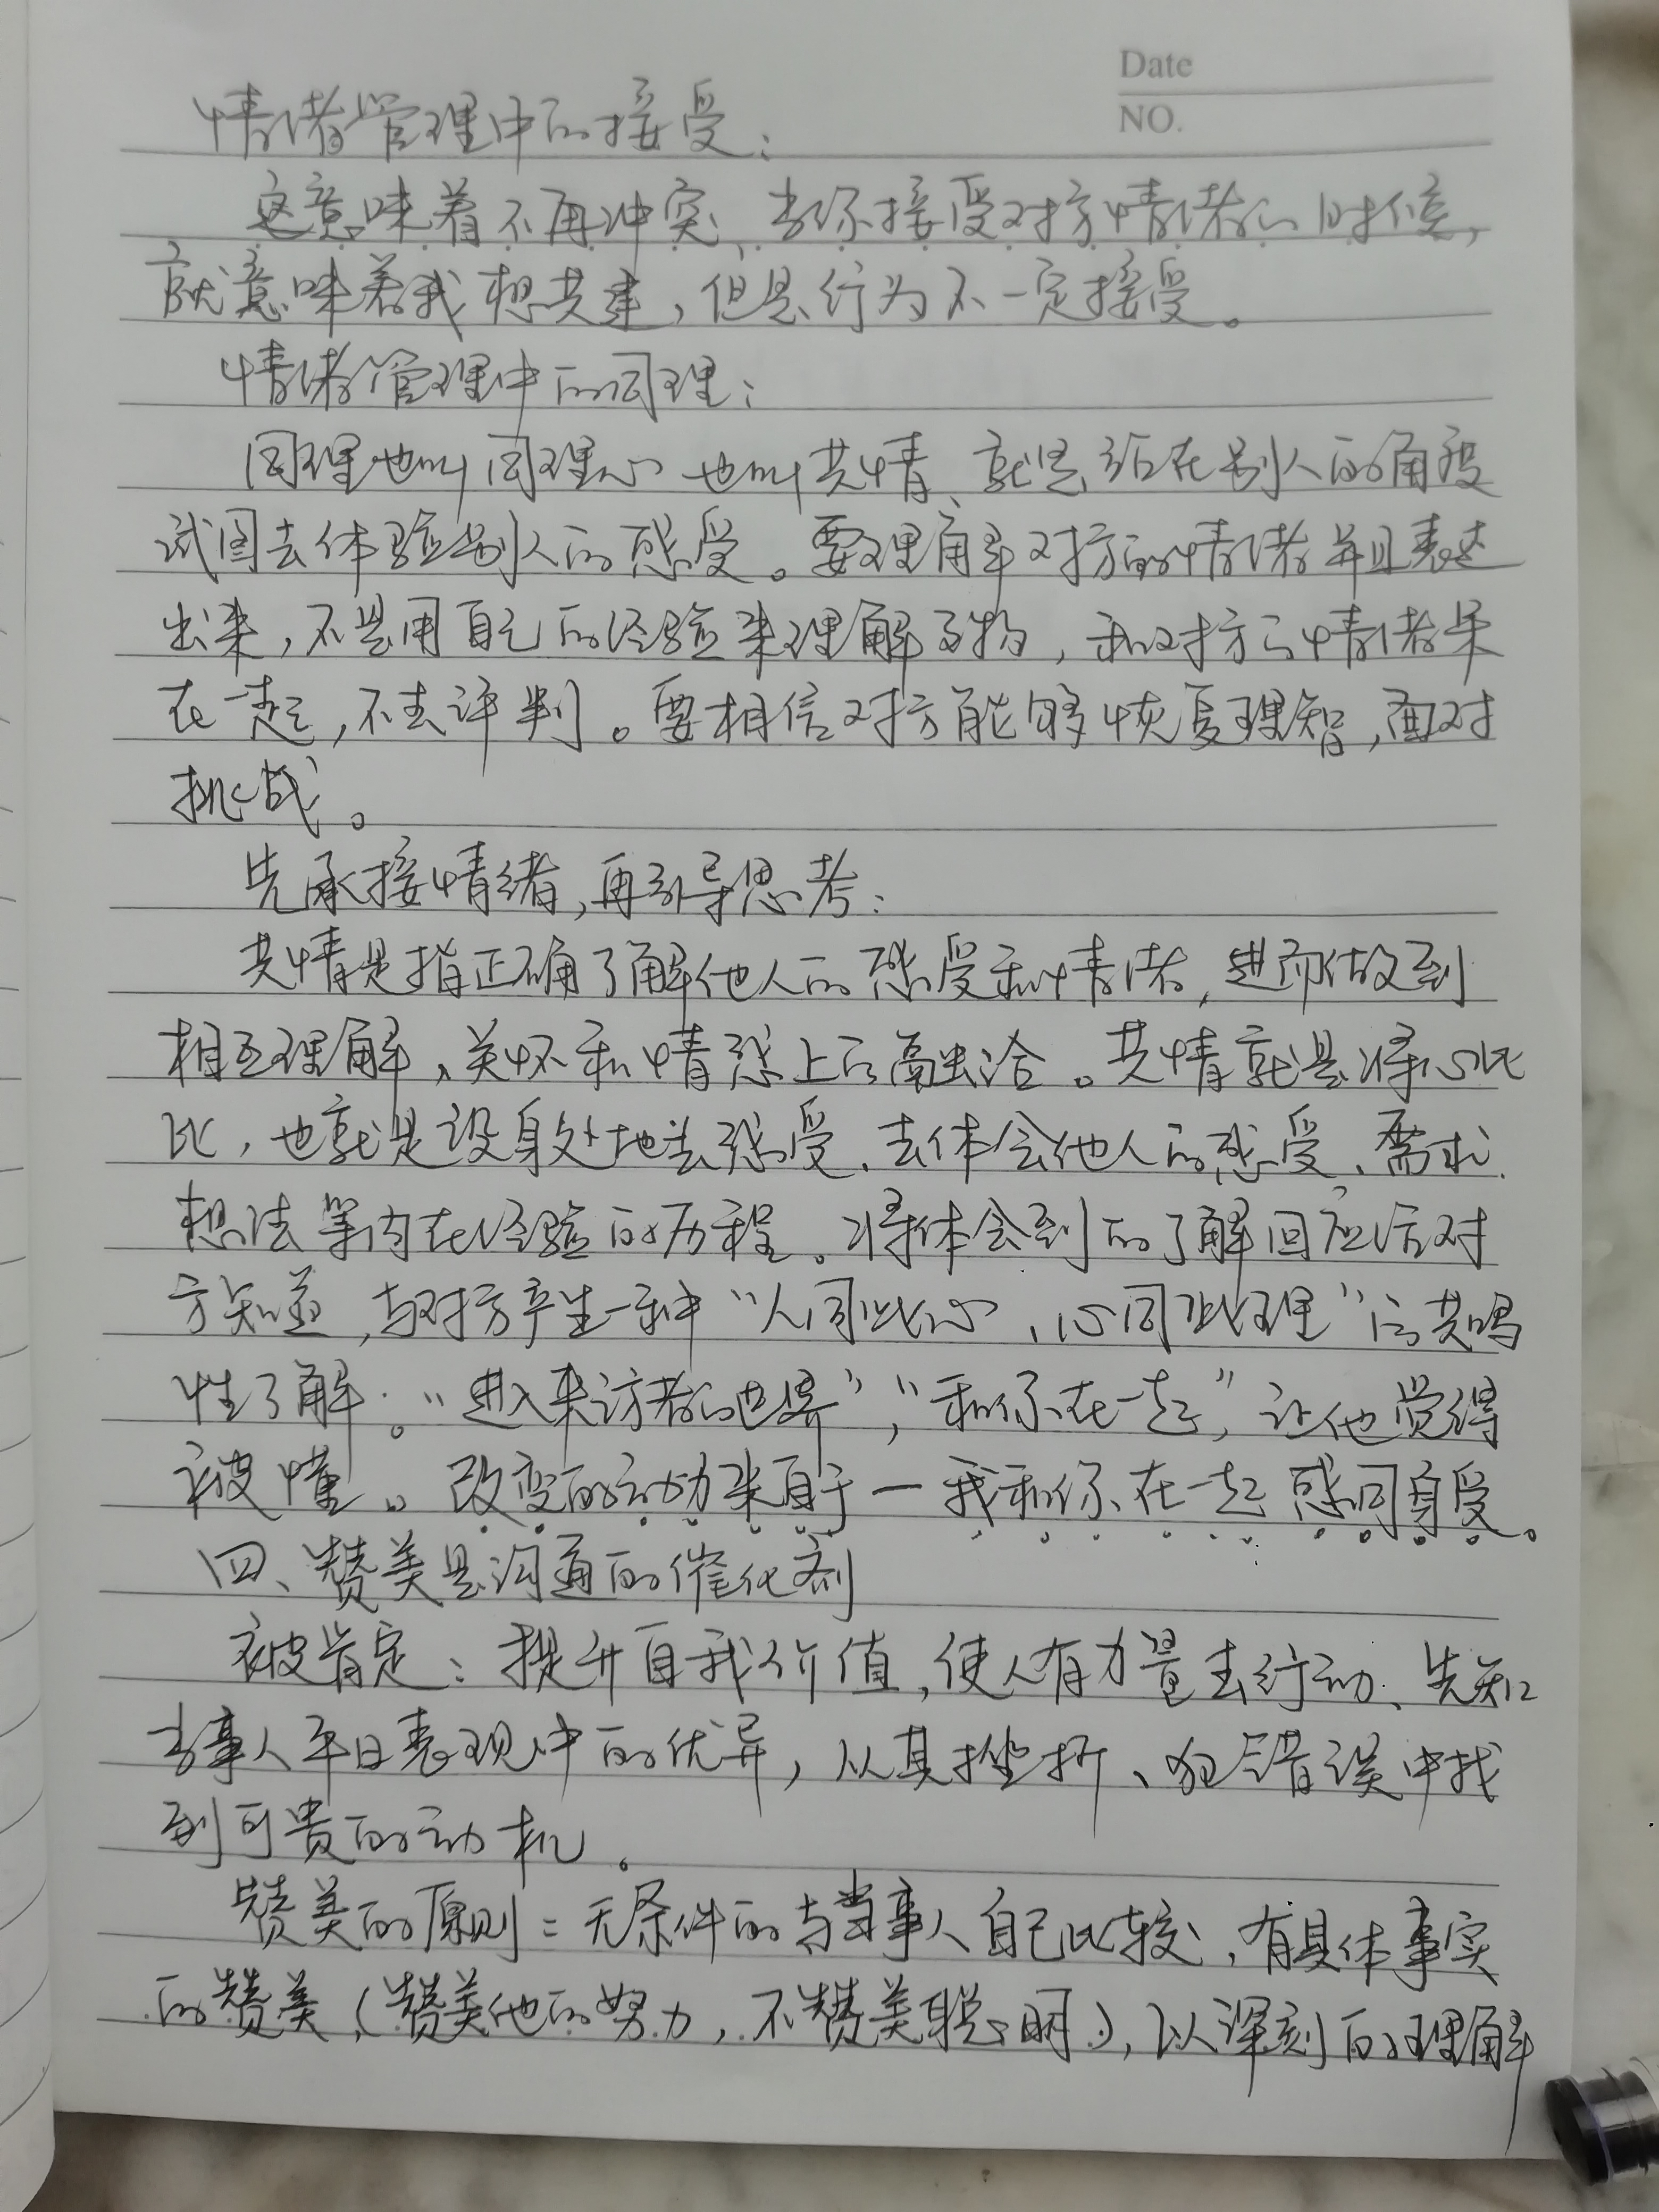 Date
NO.
情绪管理中的接受：
这意味着不再冲突、当你接受对方情绪的时候，
就意味着我想共建，但是行为不一定接受。
情绪管理中的同理：
同理也叫同理心 也叫共情、就是站在别人的角度
试图去体验别人的感受。要理解对方的情绪并且表达
出来，不是用自己的经验来理解事物，和对方的情绪呆
在一起，不去评判。要相信对方能够恢复理智，面对
挑战。
先承接情绪，再引导思考：
共情是指正确了解他人的感受和情绪，进而做到
相互理解、关怀和情感上的融洽。共情就是将心比
比，也就是设身处地去感受、去体会他人的感受、需求、
想法等内在经验的历程。将体会到的了解回应给对
方知道，与对方产生一种“人同此心、心同此理”的共鸣
性了解。“进入来访者的世界”，“和你在一起”，让他觉得
被懂。改变的动力来自于一我和你在一起 感同身受。
四、赞美是沟通的催化剂
被肯定：提升自我价值，使人有力量去行动、先知
当事人平日表现中的优异，从其挫折、犯错误中找
到可贵的动机。
赞美的原则：无条件的与当事人自己比较，有具体事实
的赞美（赞美他的努力，不赞美聪明），以深刻的理解